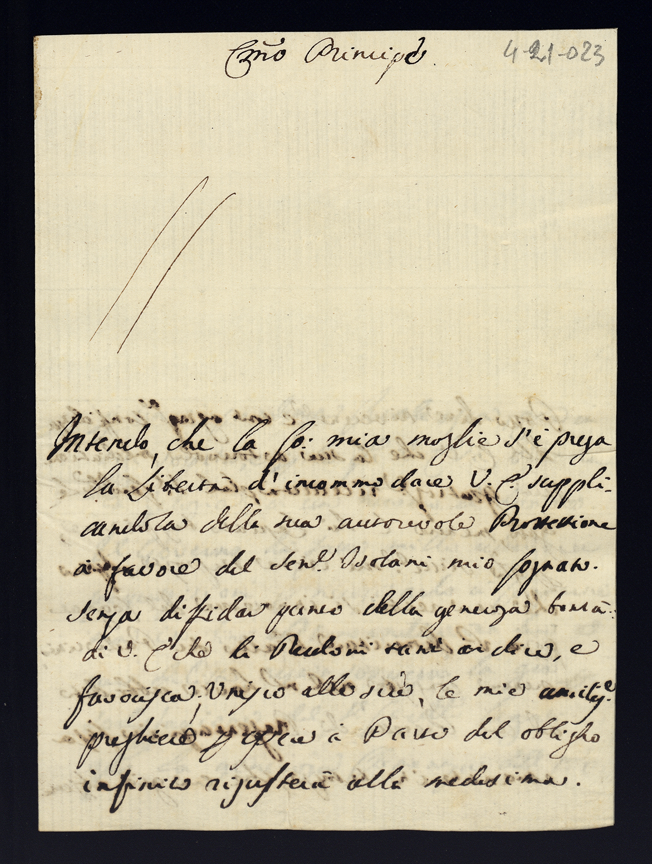 Emo Principe
4-21-023
Intendo, che la Co: mia moglie s'è presa
la Libertà d'incommodare V. E. suppli-
candola della sua autorevole Protettione
à favore del Sen.e Isolani mio Cognato.
senza diffidar punto della generosa bontà
di V. E. che li Perdoni tant' ardire, e
favorisca, Unisco alle sue, le mie
preghiere à Parte del obligho
infinito alla medesima.